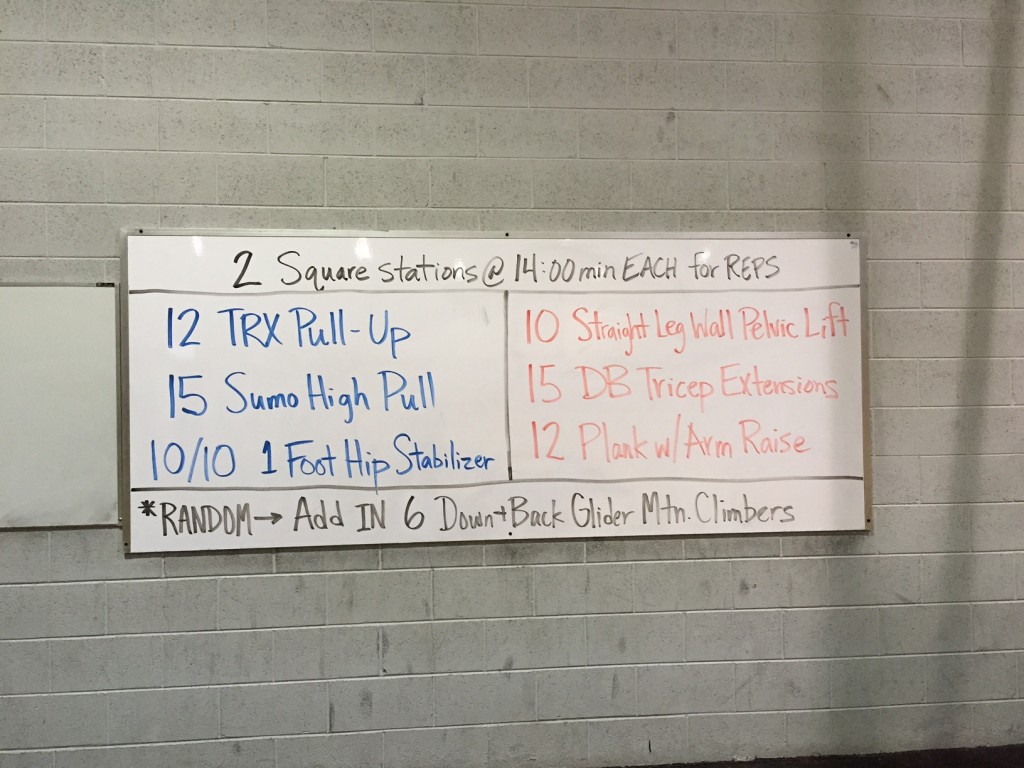 2 Square Stations @ 14:00min EACH for REPS
12 TRX Pull-Up
15 Sumo High Pull
10/10 1 Foot Hip Stabilizer
10 Straight Leg Wall Pelvic Lift
15 DB Tricep Extensions
12 Plank w/Arm Raise
*RANDOM→ Add IN 6 Down+Back Glider Mtn. Climbers